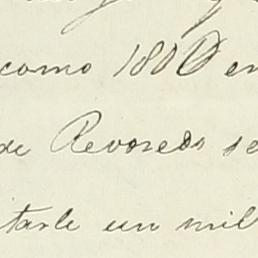 como 1800 en
de Revoredo se
tarle un mil